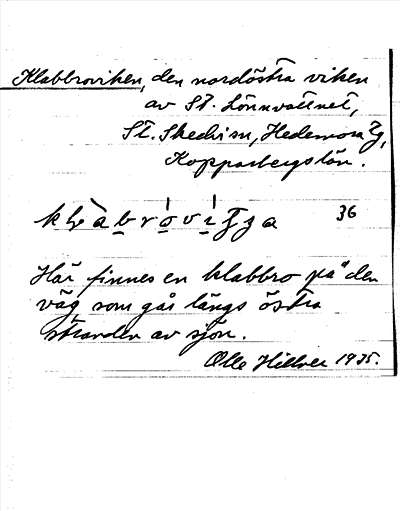 Klabbroviken, den nordöstra viken
av St. Lönnvattnet,
St. Skedvi sn, Hedemora Tg,
Kopparbergs län.
36
Här finnes en klabbro på den
väg som går längs östra
stranden av sjön.
Olle Hillver 1935.